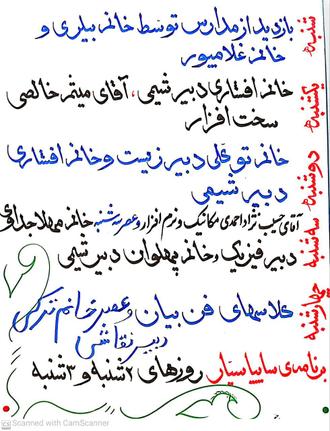 شنبه بازدید از مدارس توسط خانم بیلری و
خانم غلامپور
یکشنبه خانم افشاری دبیر شیمی، آقای میثم خالصی
سخت افزار
دوشنبه خانم توکلی دبیر زیست و خانم افشاری
دبیر شیمی
سه شنبه آقای حبیب نژاد احمدی مکانیک و نرم افزار و عصر سه شنبه خانم مهلا
دبیر فیزیک و خانم پهلوان دبیر شیمی
چهارشنبه کلاسهای فن بیان و عصر خانم
دبیر نقاشی
برنامه ی سایپا سیار روزهای ۲شنبه و ۳شنبه
CS Scanned with CamScanner